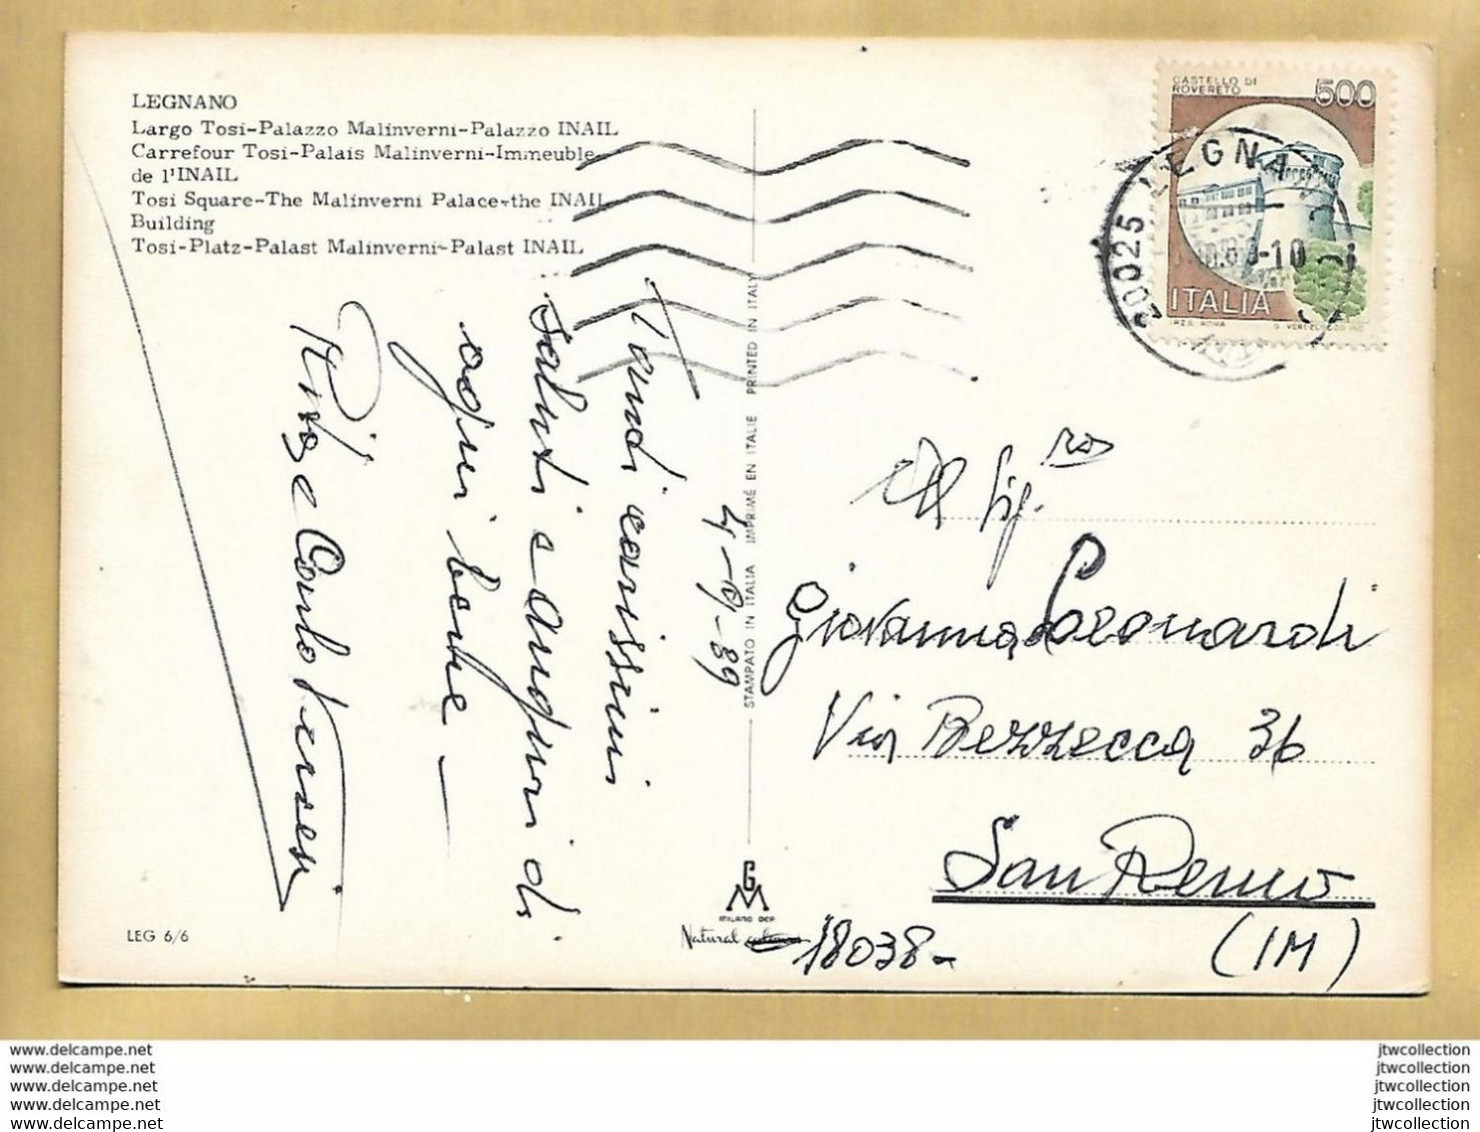 LEGNANO
Largo Tosi-Palazzo Malinverni-Palazzo INAIL
Carrefour Tosi-Palais Malinverni-Immeuble
de l'INAIL
Tosi Square-The Malinverni Palace-the INAIL
Building
Tosi-Platz-Palast Malinverni-Palast INAIL
CASTELLO DI
ROVERETO
500
ITALIA
I.P.Z.S. ROMA
20025 LEGNA
4-9-89
Tanti carissimi
saluti e auguri di
ogni bene
Rita e Carlo
STAMPATO IN ITALIA IMPRIMÉ EN ITALIE PRINTED IN ITALY
Sig.ra
Giovanna Leonardi
Via Bezzecca 36
San Remo
(IM)
18038-
GM
MILANO DEP
Natural colours
LEG 6/6
www.delcampe.net
www.delcampe.net
www.delcampe.net
www.delcampe.net
www.delcampe.net
jtwcollection
jtwcollection
jtwcollection
jtwcollection
jtwcollection